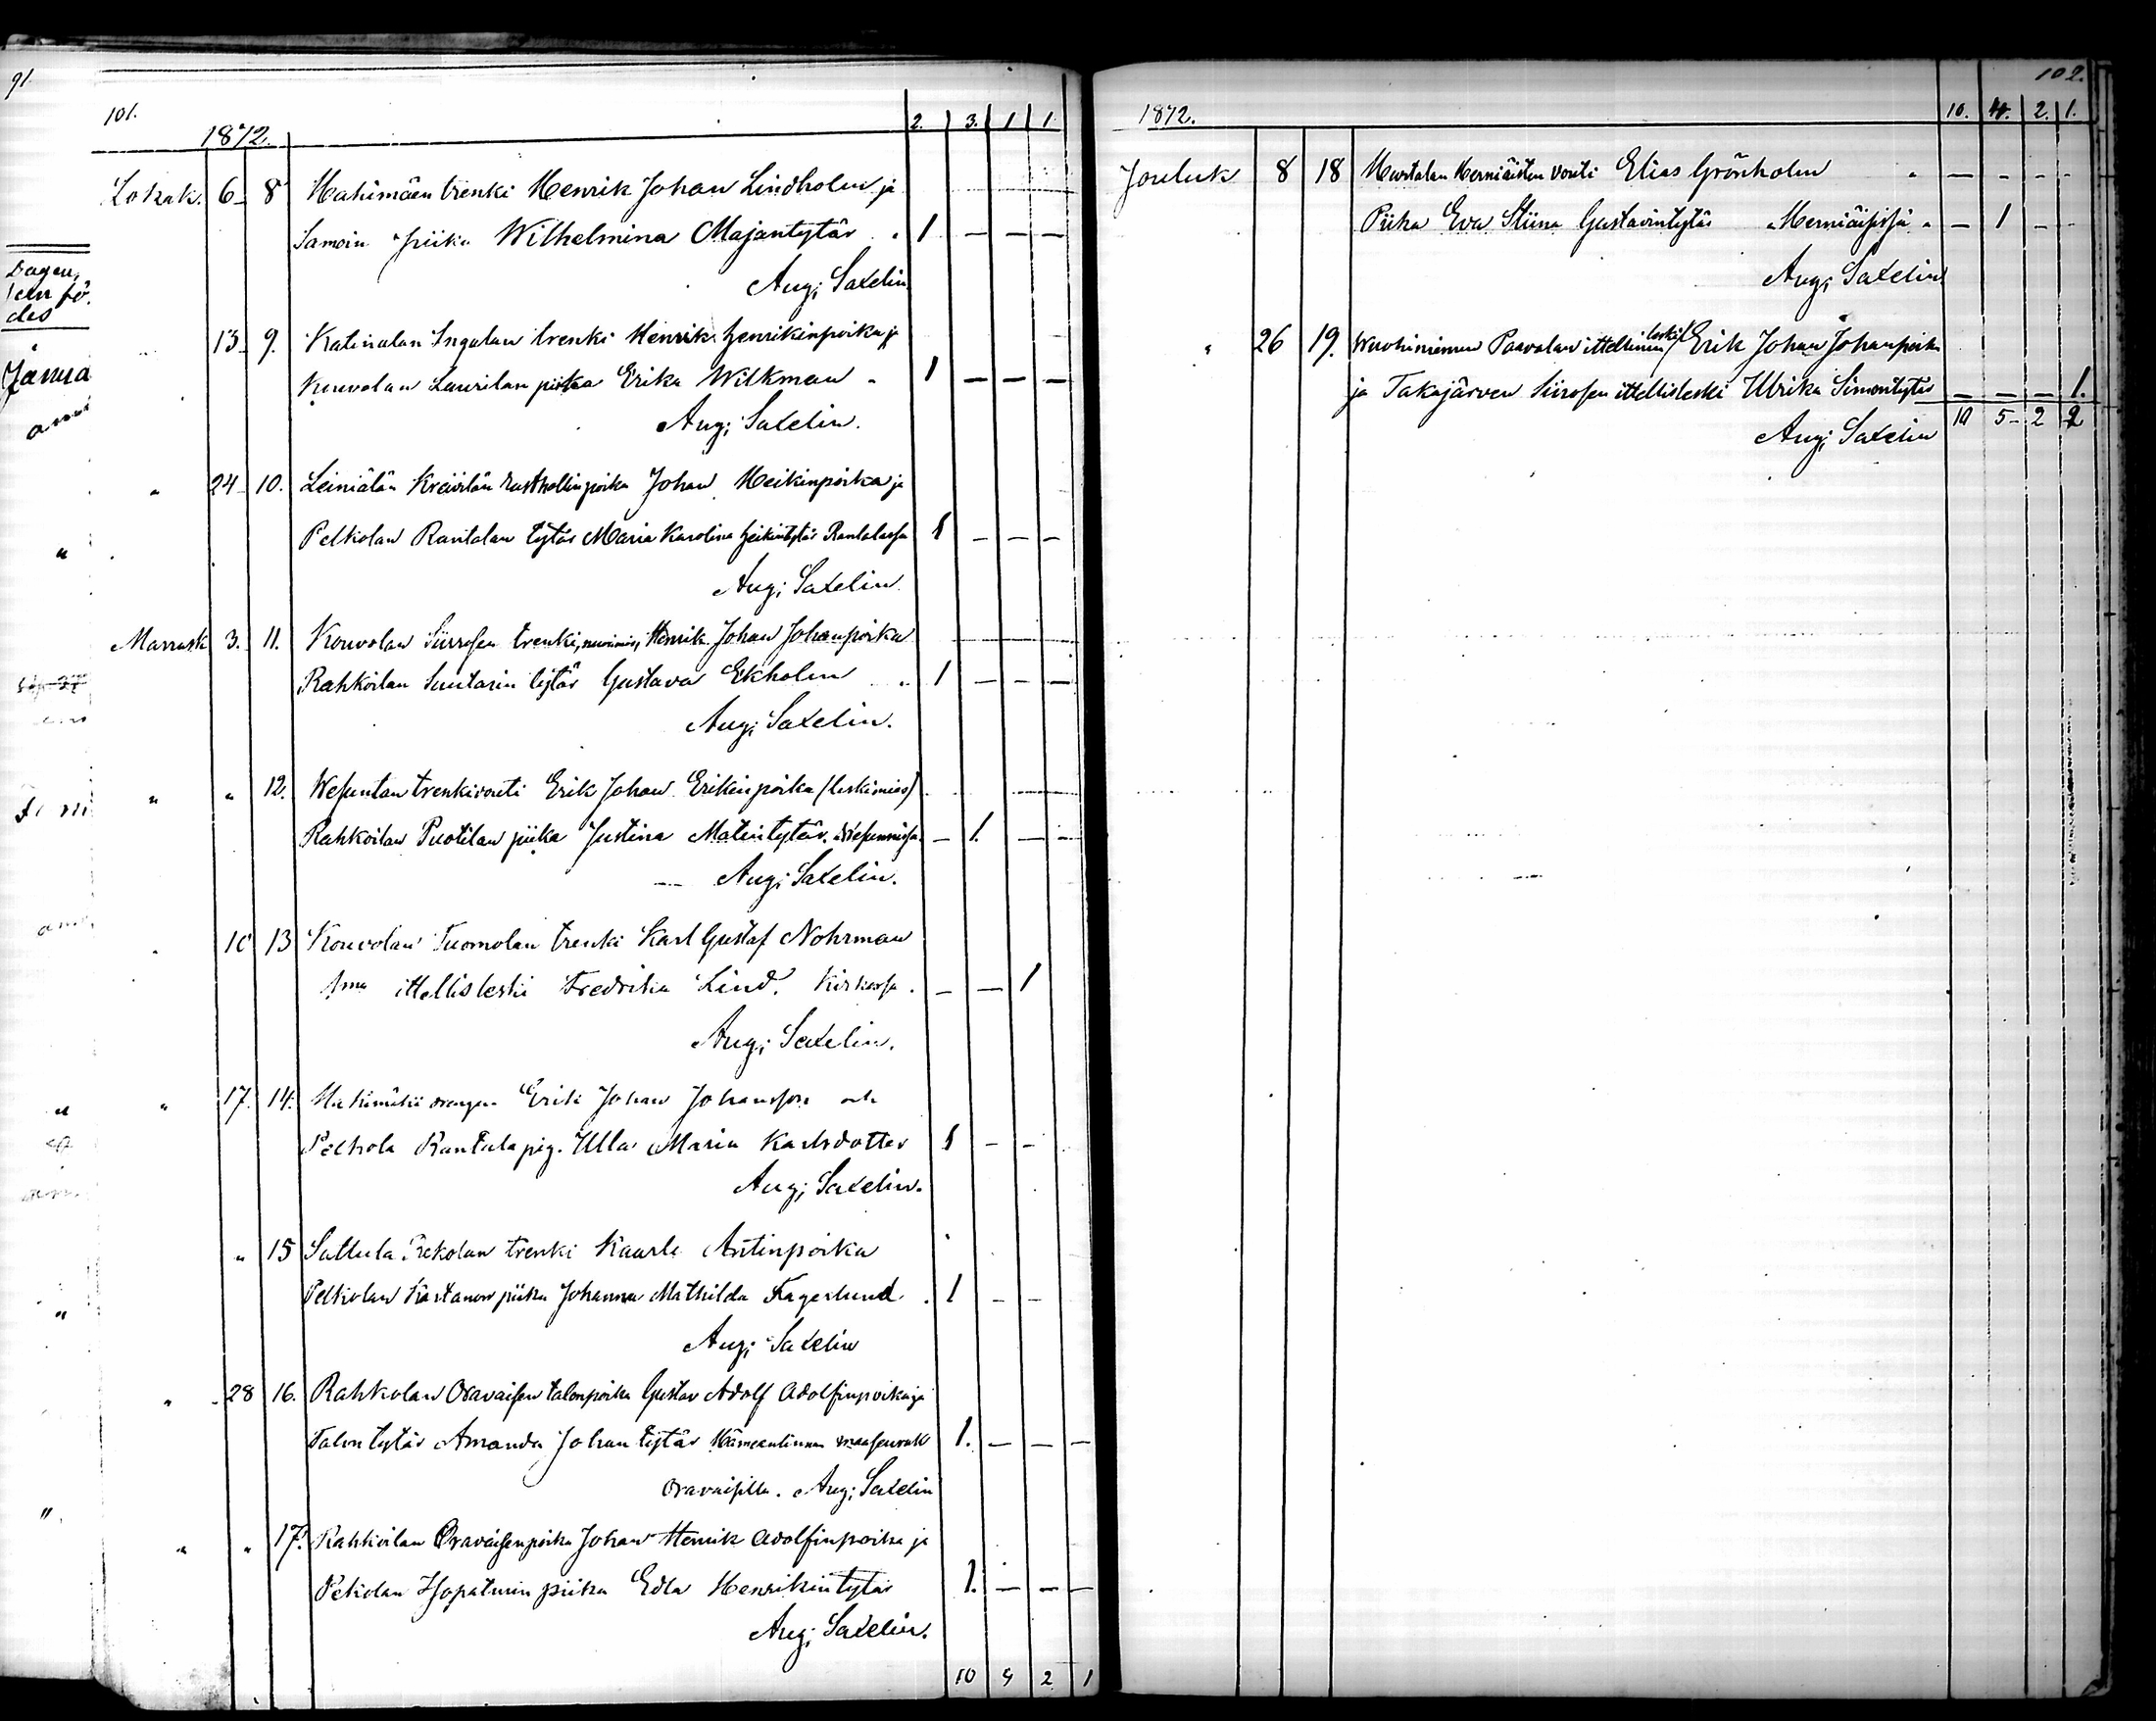 91.
101.
1872. 2. 3. 1 1
Lokak. 6 8 Hakimäen trenki Henrik Johan Lindholm ja
Samoin piika Wilhelmina Majantytär . 1 — — —
Aug; Saxelin
13 9. Katinalan Ingalan trenki Henrik Henrikinpoika ja
Kouvolan Laurilan piika Erika Wilkman . 1 — — —
Aug; Saxelin.
" 24 10. Leiniälän Kreivilän rusthollinpoika Johan Heikinpoika ja
Pelkolan Rantalan tytär Maria Karolina Heikintytär Rantalassa 1 — — —
Aug; Saxelin.
Marrask 3. 11. Kouvolan Siirosen trenki, nuorimies, Henrik Johan Johanpoika
Rahkoilan Suutarin tytär Gustava Ekholm . 1 — — —
Aug; Saxelin.
" " 12. Wesuntan trenkivouti Erik Johan Erikinpoika (leskimies)
Rahkoilan Puotilan piika Justina Matintytär. Wesunnissa. — 1. — —
Aug; Saxelin.
" 10 13 Kouvolan Tuomolan trenki Karl Gustaf Nohrman
ittellisleski Fredrika Lind. — — 1
Aug; Saxelin.
" 17. 14. Hakimäki drengen Erik Johan Johansson och
Pelkola Rantala pig. Ulla Maria Karlsdotter 1 — —
Aug; Saxelin.
" 15 Sattula Prekolan trenki Kaarle Antinpoika
Pelkolan Kartanon piika Johanna Mathilda Fagerlund . 1 — —
Aug; Saxelin
" 28 16. Rahkolan Oravaisen talonpoika Gustav Adolf Adolfinpoika ja
Talon tytär Amanda Johan tytär Hämeenlinnan maaseurak 1. — — —
Oravaisilla. Aug; Saxelin
" " 17. Rahkoilan Oravaisenpoika Johan Henrik Adolfinpoika ja
Pekolan piika Edla Henrikintytär 1. — — —
Aug; Saxelin.
10 4 2 1
102.
1872. 10. 4. 2. 1.
Jouluk 8 18 vouti Elias Grönholm . — — — —
Piika Eva Stiina Gustavintytär — 1 — —
Aug; Saxelin
" 26 19. Wuohiniemen Paavolan ittellinen leski Erik Johan Johanpoika
ja Takajärven Siirosen ittellisleski Ulrika Simontytär — — — 1.
Aug; Saxelin 10 5 2 2